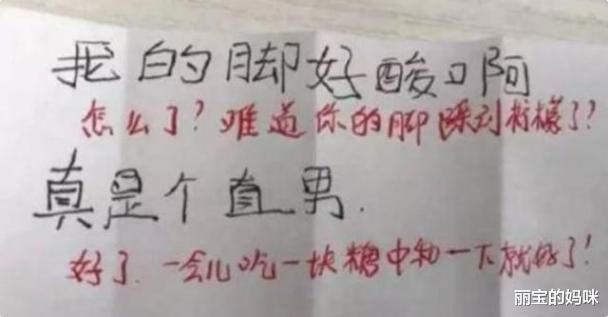 我的脚好酸口阿
怎么了?难道你的脚踩到柠檬了?
真是个直男.
好了.一会儿吃一块糖中和一下就好了!
丽宝的妈咪